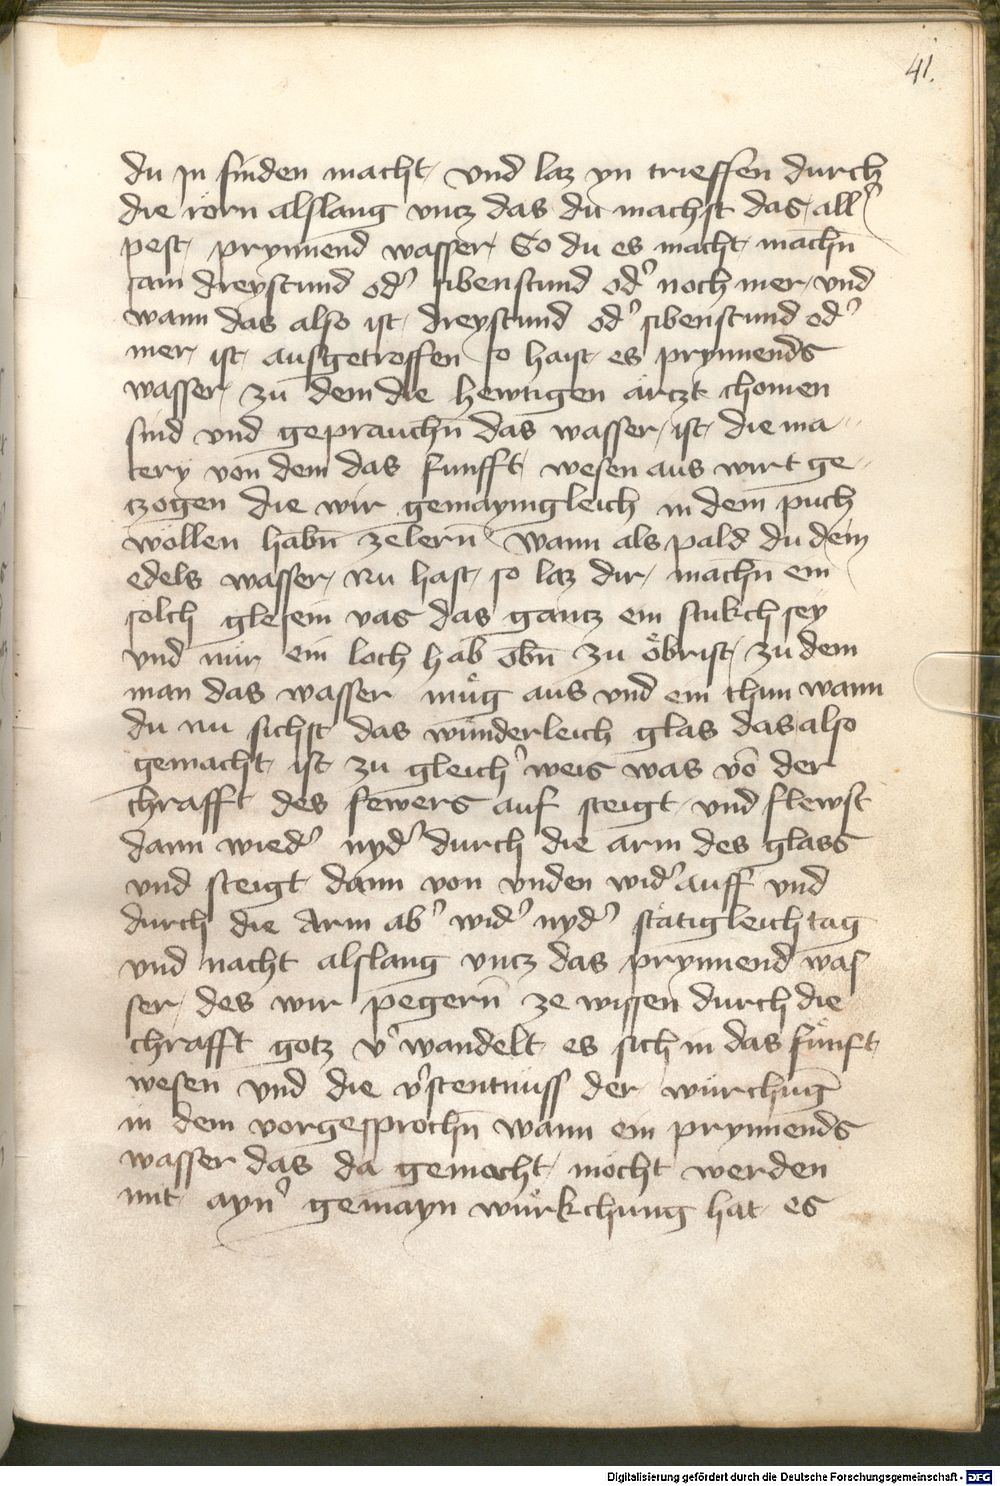 41.
du in finden macht, und laz yn trieffen durch
die rörn alslang uncz das du machst das, all'
pest, prynnend wasser, So du es macht, machn̄
sam dreystund od' sibenstund od' noch mer, und
wann das also ist, dreystund od' sibenstund od'
mer, ist, ausgetroffen so haist, es prynnends
wasser, zu dem die hewtigen ärczt chomen
sind und gepraucħn das wasser, ist, die ma-
tery von dem das funfft, wesen aus wirt ge-
czogen die wir gemayngleich in dem puch
wöllen habn̄ ze lern̄ Wann als pald du dem
edels wasser, Nu hast, so laz dir, machn̄ ein
solch glesein vas das gantz ein stukch sey
und nür ein loch hab obn̄ zu öbrist, zu dem
man das wasser müg aus und ein thun wann
du nu sichst das wunderleich glas das also
gemacht, ist zu gleich' weis was vō der
chrafft des fewers auf steigt, und flewst
dann wied' nyd' durch die arm des glass
und steigt dann von unden wid' auff und
durch die Arm ab' wid' nyd' stätigleich tag
und nacht alslang uncz das prynnend was
ser, des wir pegern̄ ze wissen durch die
chrafft gotz v'wandelt, es sich in das fünft,
wesen und die v'stentnuss der würchūg
in dem vorgesprochn̄ wann ein prynnends
wasser das da gemacht, möcht werden
mit, ayn' gemayn würkchung hat es
Digitalisierung gefördert durch die Deutsche Forschungsgemeinschaft - DFG